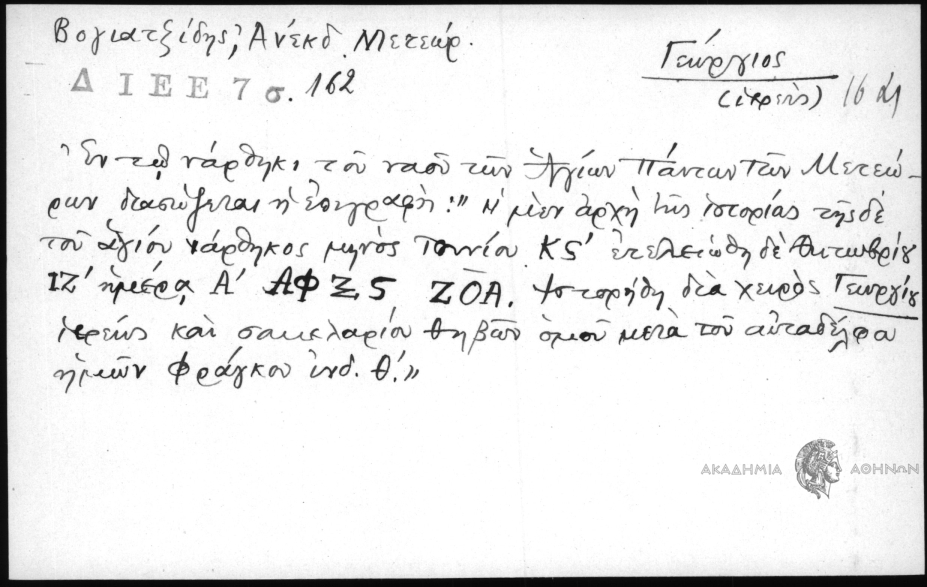 Βογιατζίδης, Ἀνέκδ. Μετεώρ.
Δ Ι Ε Ε 7 σ. 162
Γεώργιος
(ἱερεὺς) 16 αἰ
Ἐν τῷ νάρθηκι τοῦ ναοῦ τῶν Ἁγίων Πάντων τῶν Μετεώ-
ρων διασώζεται ἡ ἐπιγραφή: " Ἡ μὲν ἀρχὴ τῆς ἱστορίας τῆσδὲ
τοῦ ἁγίου νάρθηκος μηνὸς Ἰουνίου ΚS' ἐτελειώθη δὲ Ὀκτωβρίου
ΙΖ' ἡμέρᾳ Α' ΑΦΞS ΖΟΑ. Ἱστορήθη διὰ χειρὸς Γεωργίου
ἱερέως καὶ σακελαρίου Θηβῶν ὁμοῦ μετὰ τοῦ αὐταδέλφου
ἡμῶν Φράγκου ἰνδ. Θ'."
ΑΚΑΔΗΜΙΑ ΑΘΗΝΩΝ